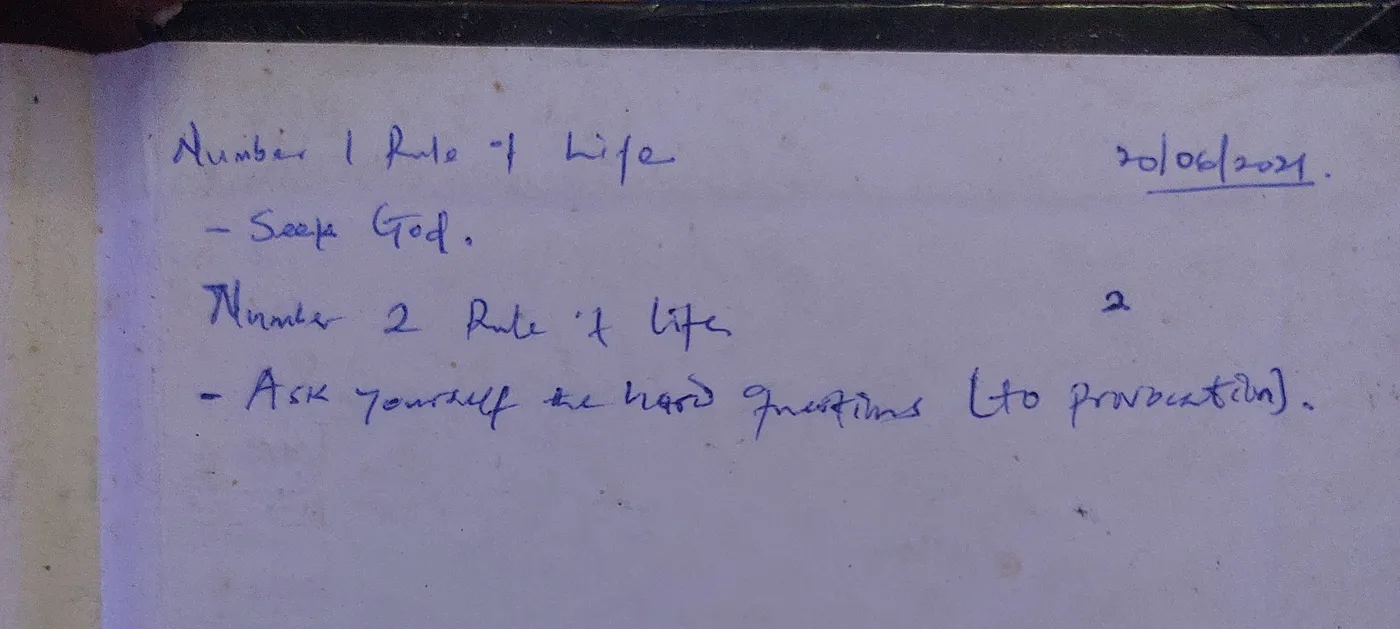 Number 1 Rule of Life 20/06/2021.
- Seek God.
Number 2 Rule of Life 2
- Ask yourself the hard questions (to provocation).